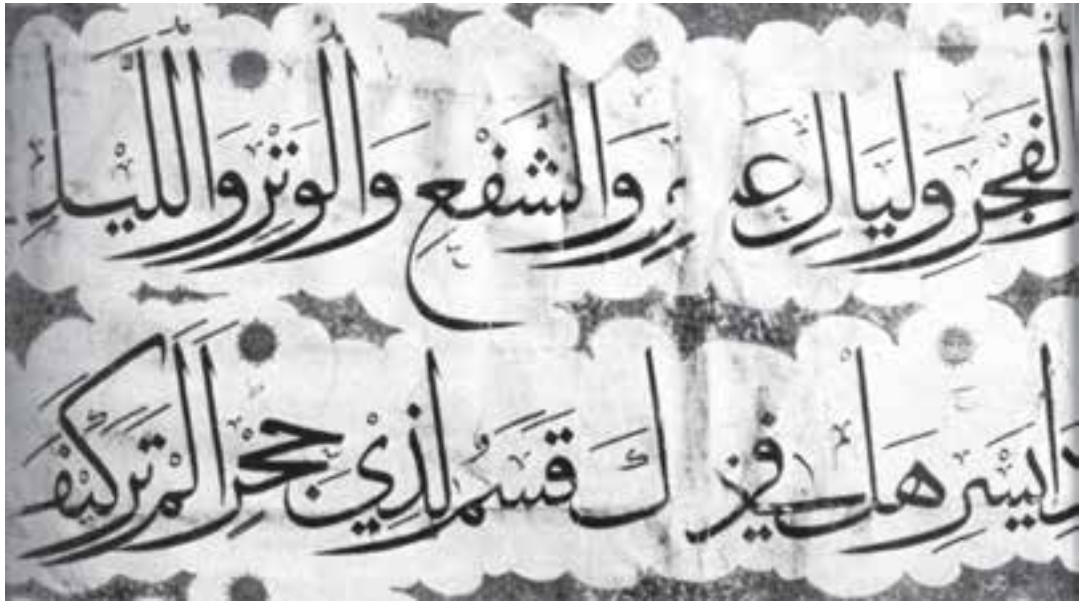 الْفَجْرِ وَلَيَالٍ عَشْرٍ وَالشَّفْعِ وَالْوَتْرِ وَاللَّيْلِ
ذَا يَسْرِ هَلْ فِي ذَلِكَ قَسَمٌ لِذِيْ حِجْرٍ اَلَمْ تَرَ كَيْفَ